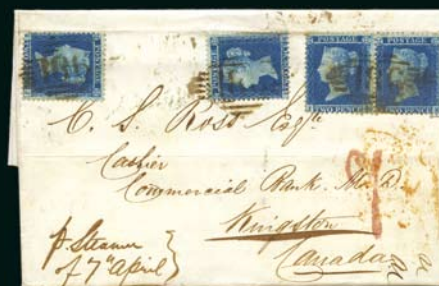 POSTAGE POSTAGE
TWO PENCE TWO PENCE
C. S. Ross Esqre
Cashier
Commercial Bank. M. D.
Kingston
Canada
p. Steamer
of 7th April